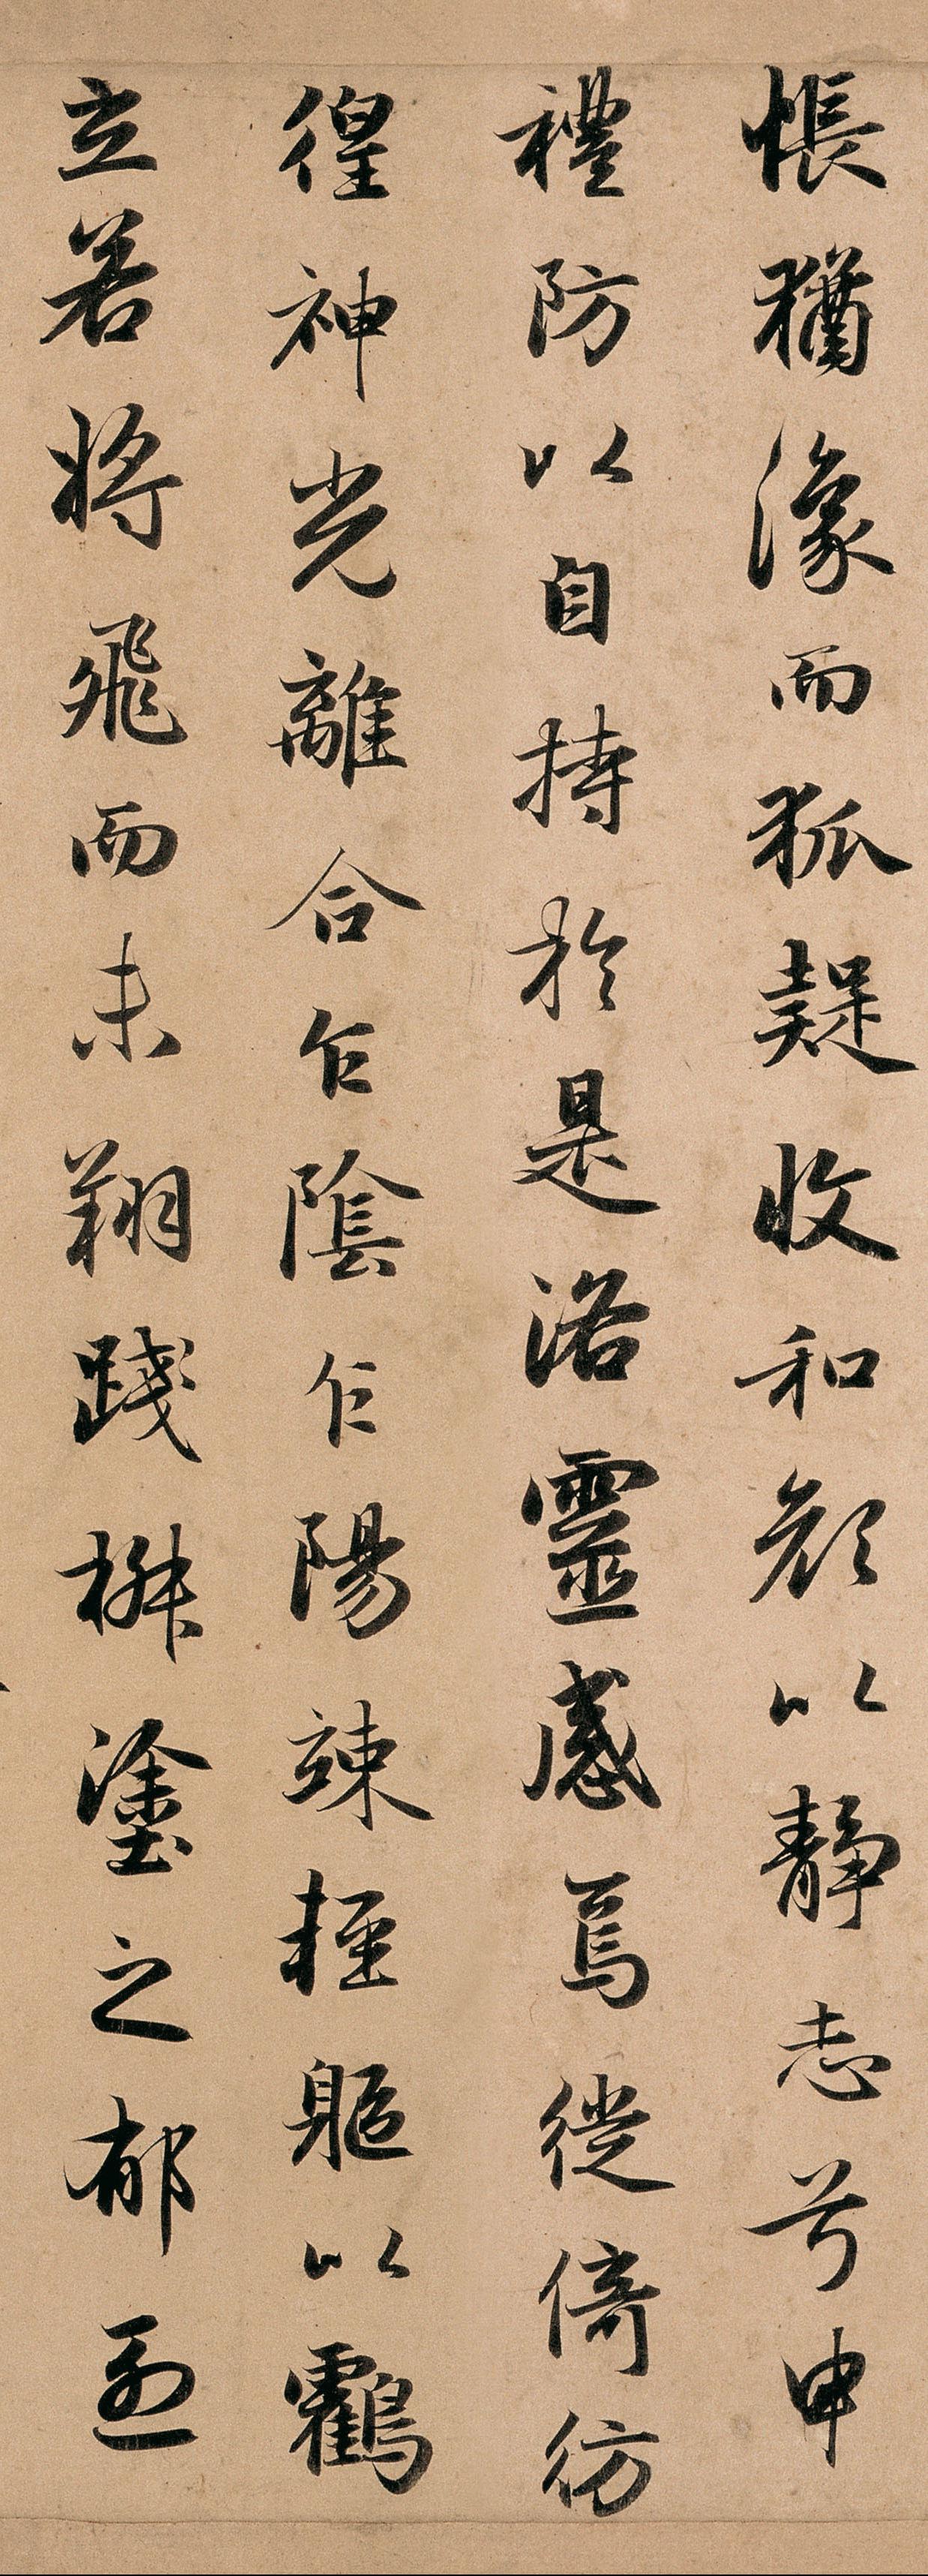 悵猶㺄而狐疑收和顏以靜志兮申
禮防以自持於是洛靈感焉徙倚彷
徨神光離合乍陰乍陽竦輕軀以鶴
立若將飛而未翔踐椒塗之郁烈